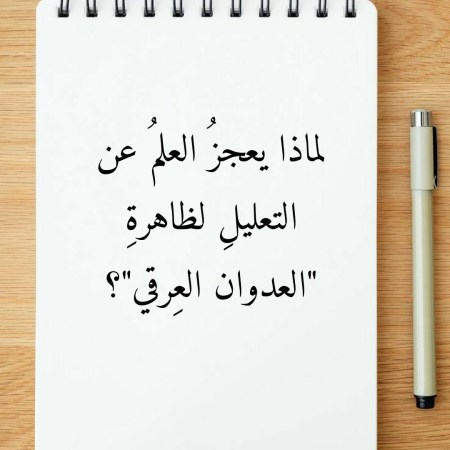 لماذا يعجزُ العلمُ عن
التعليلِ لظاهرةِ
"العدوان العِرقي"؟